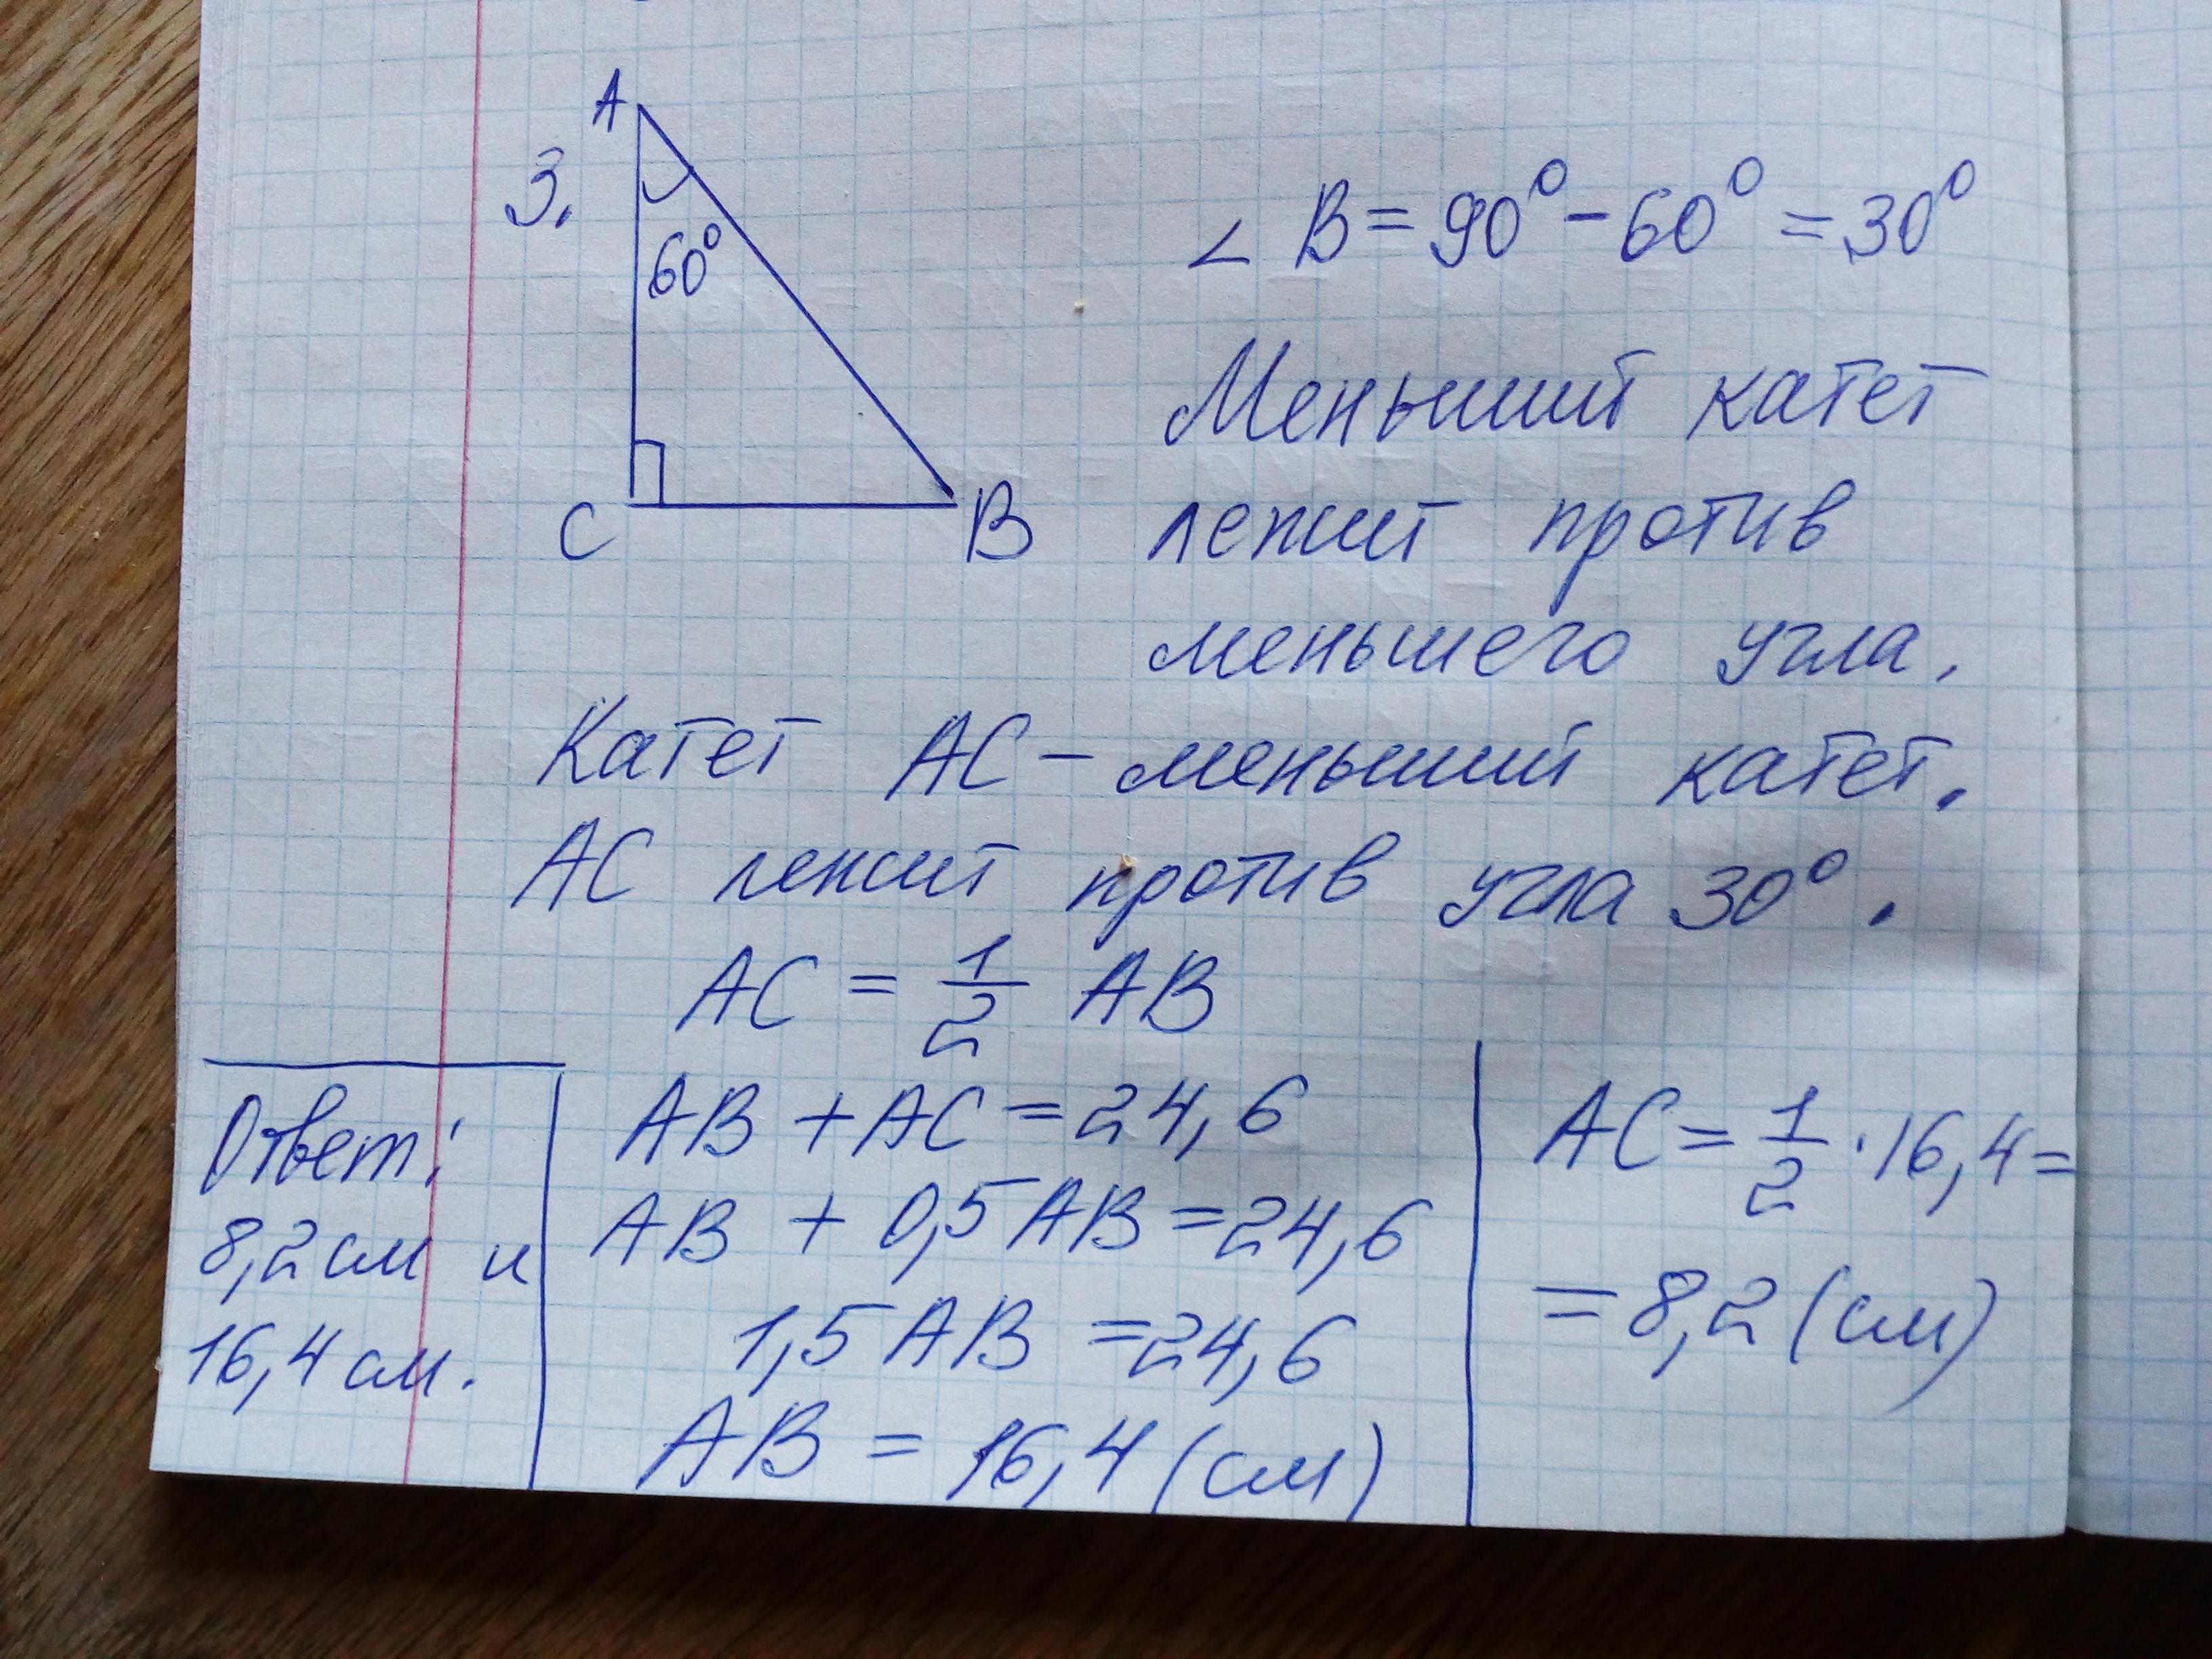 A
3.
60°
C
B
∠ B = 90° - 60° = 30°
Меньший катет
лежит против
меньшего угла.
Катет AC - меньший катет.
AC лежит против угла 30°.
AC = 1/2 AB
AB + AC = 24,6
AB + 0,5 AB = 24,6
1,5 AB = 24,6
AB = 16,4 (см)
AC = 1/2 · 16,4 =
= 8,2 (см)
Ответ:
8,2 см и
16,4 см.